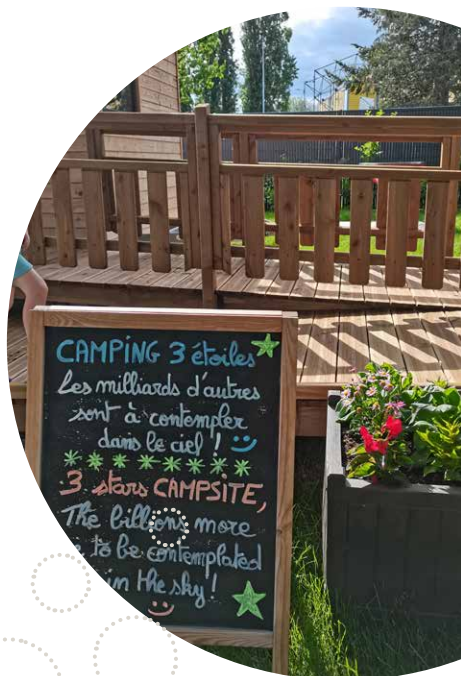 CAMPING 3 étoiles
Les milliards d'autres
sont à contempler
dans le ciel !
3 stars CAMPSITE,
The billions more
to be contemplated
in the sky!